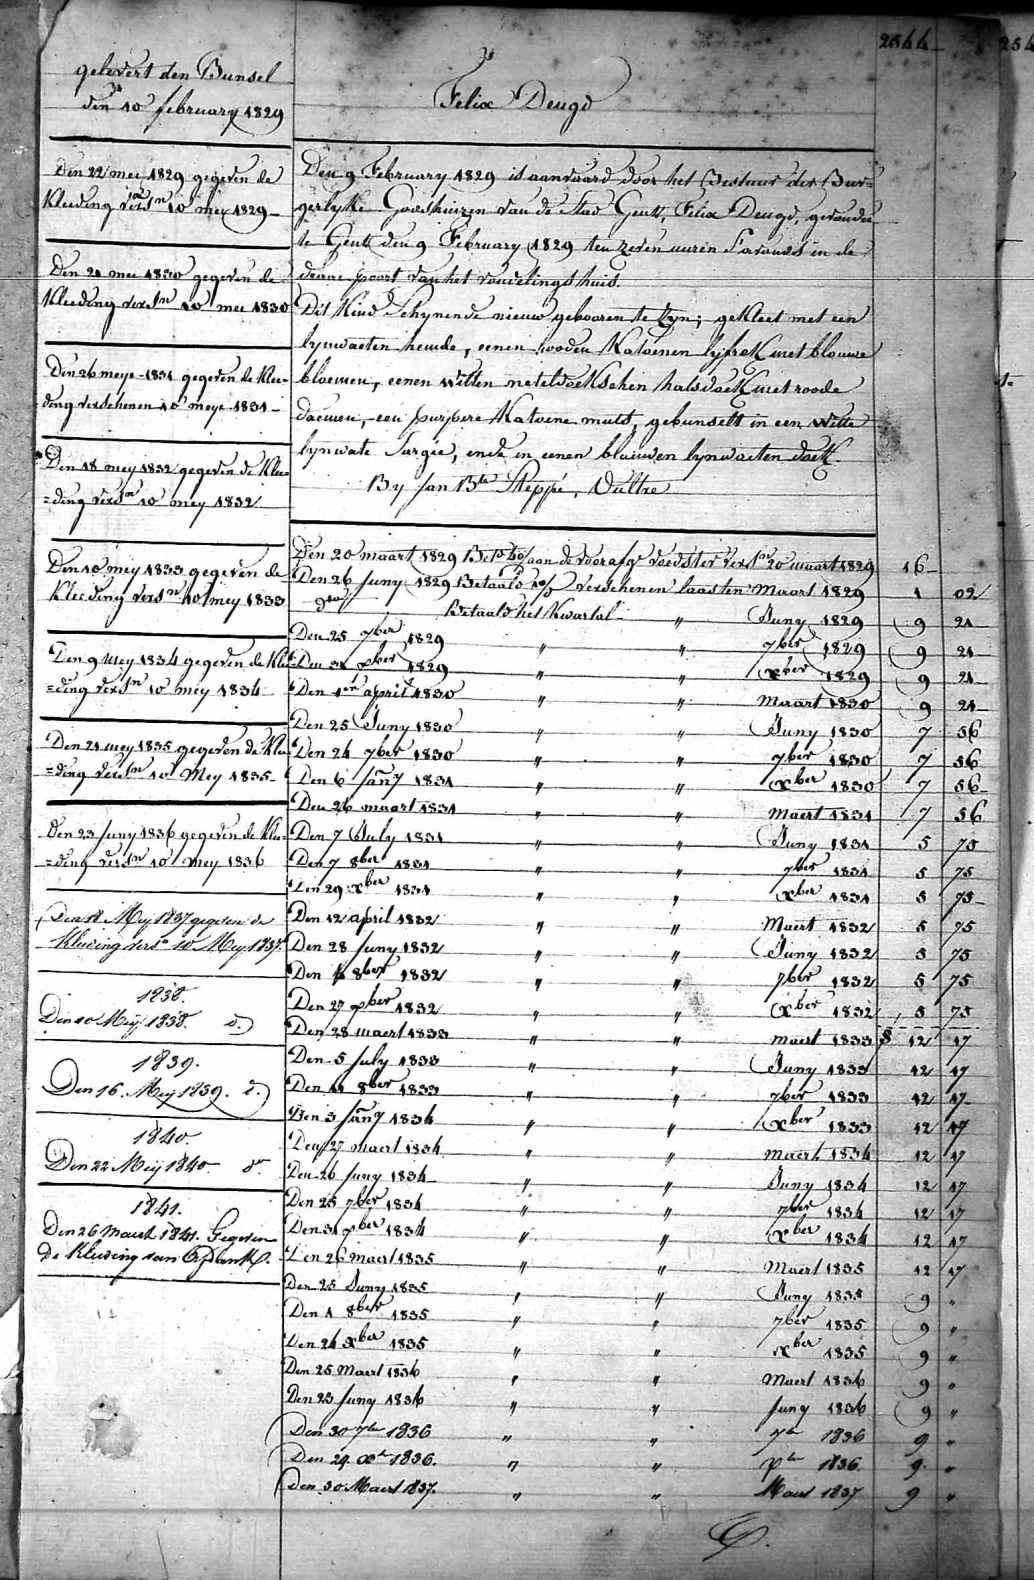 2544
254
gelevert den Bunsel
den 10 february 1829
Felix Deugd
Den 22 mei 1829 gegeven de
Kleeding versn 10 mey 1829
Den 21 mei 1830 gegeven de
Kleeding versn 10 mei 1830
Den 26 meye 1831 gegeven de Klee-
ding verschenen 10 meye 1831
Den 18 mey 1832 gegeven de Klee-
=ding versn 10 mey 1832
Den 10 mey 1833 gegeven de
Kleeding versn 10 mey 1833
Den 9 mey 1834 gegeven de Klee
=ding versn 10 mey 1834
Den 21 mey 1835 gegeven de Klee-
=ding versn 10 Mey 1835
Den 23 juny 1836 gegeven de Klee-
=ding versn 10 mey 1836
Den 18 Mey 1837 gegeven de
Kleeding versn 10 Mey 1837
1838.
Den 10 Meij 1838. d.
1839.
Den 16. Meij 1839. d.
1840.
Den 22 Meij 1840 do
1841.
Den 26 Maert 1841. Gegeven
de Kleeding van
Den 9 February 1829 is aanvaard door het Bestuur der Bur=
gerlyke Godshuizen van de Stad Gent, Felix Deugd, gevonden
te Gent den 9 February 1829 ten zeven uuren s'avonds in de
draae poort van het vondelingshuis.
Dit Kind schynende nieuw gebooren te zyn; gekleet met een
lynwaeten hemde, eenen rooden Katoenen lyfrok met blouwe
bloemen, eenen witten neteldoekschen halsdoek met roode
daemen, een purpere Katoene muts, gebunselt in een witte
lynwate sargie, ende in eenen blauwen lynwaeten doek.
By Jan Bte Steppé, Vultre
Den 20 maart 1829 aan de voorafg voedster versn 20 maart 1829 16 -
Den 26 Juny 1829 Betaald verschenen laasten Maart 1829 1 02
dto Betaald het Kwartal " Juny 1829 9 21
Den 25 7ber 1829 " " 7ber 1829 9 21
Den 31 xber 1829 " " xber 1829 9 21
Den 1en april 1830 " " Maart 1830 9 21
Den 25 Juny 1830 " " Juny 1830 7 56
Den 24 7ber 1830 " " 7ber 1830 7 56
Den 6 Jany 1831 " " xber 1830 7 56
Den 26 maart 1831 " " Maert 1831 7 56
Den 7 July 1831 " " Juny 1831 5 75
Den 7 8ber 1831 " " 7ber 1831 5 75
Den 29 xber 1831 " " xber 1831 5 75
Den 12 april 1832 " " Maert 1832 5 75
Den 28 Juny 1832 " " Juny 1832 5 75
Den 8ber 1832 " " 7ber 1832 5 75
Den 27 xber 1832 " " xber 1832 5 75
Den 28 maert 1833 " " maert 1833 12 17
Den 5 July 1833 " " Juny 1833 12 17
Den 11 8ber 1833 " " 7ber 1833 12 17
Den 3 Jany 1834 " " xber 1833 12 17
Den 27 maert 1834 " " maert 1834 12 17
Den 26 Juny 1834 " " Juny 1834 12 17
Den 25 7ber 1834 " " 7ber 1834 12 17
Den 31 xber 1834 " " xber 1834 12 17
Den 26 maert 1835 " " Maert 1835 12 17
Den 25 Juny 1835 " " Juny 1835 9 "
Den 1 8ber 1835 " " 7ber 1835 9 "
Den 24 xber 1835 " " xber 1835 9 "
Den 25 Maert 1836 " " Maert 1836 9 "
Den 23 Juny 1836 " " Juny 1836 9 "
Den 30 7ber 1836 " " 7ber 1836 9 "
Den 29 xber 1836. " " xber 1836 9 "
Den 30 Maert 1837. " " Maert 1837 9 "